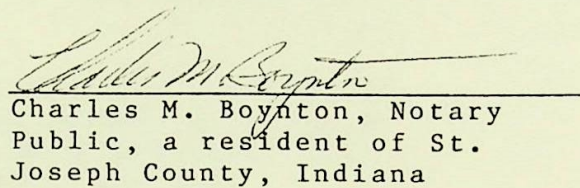 Charles M. Boynton
Charles M. Boynton, Notary
Public, a resident of St.
Joseph County, Indiana